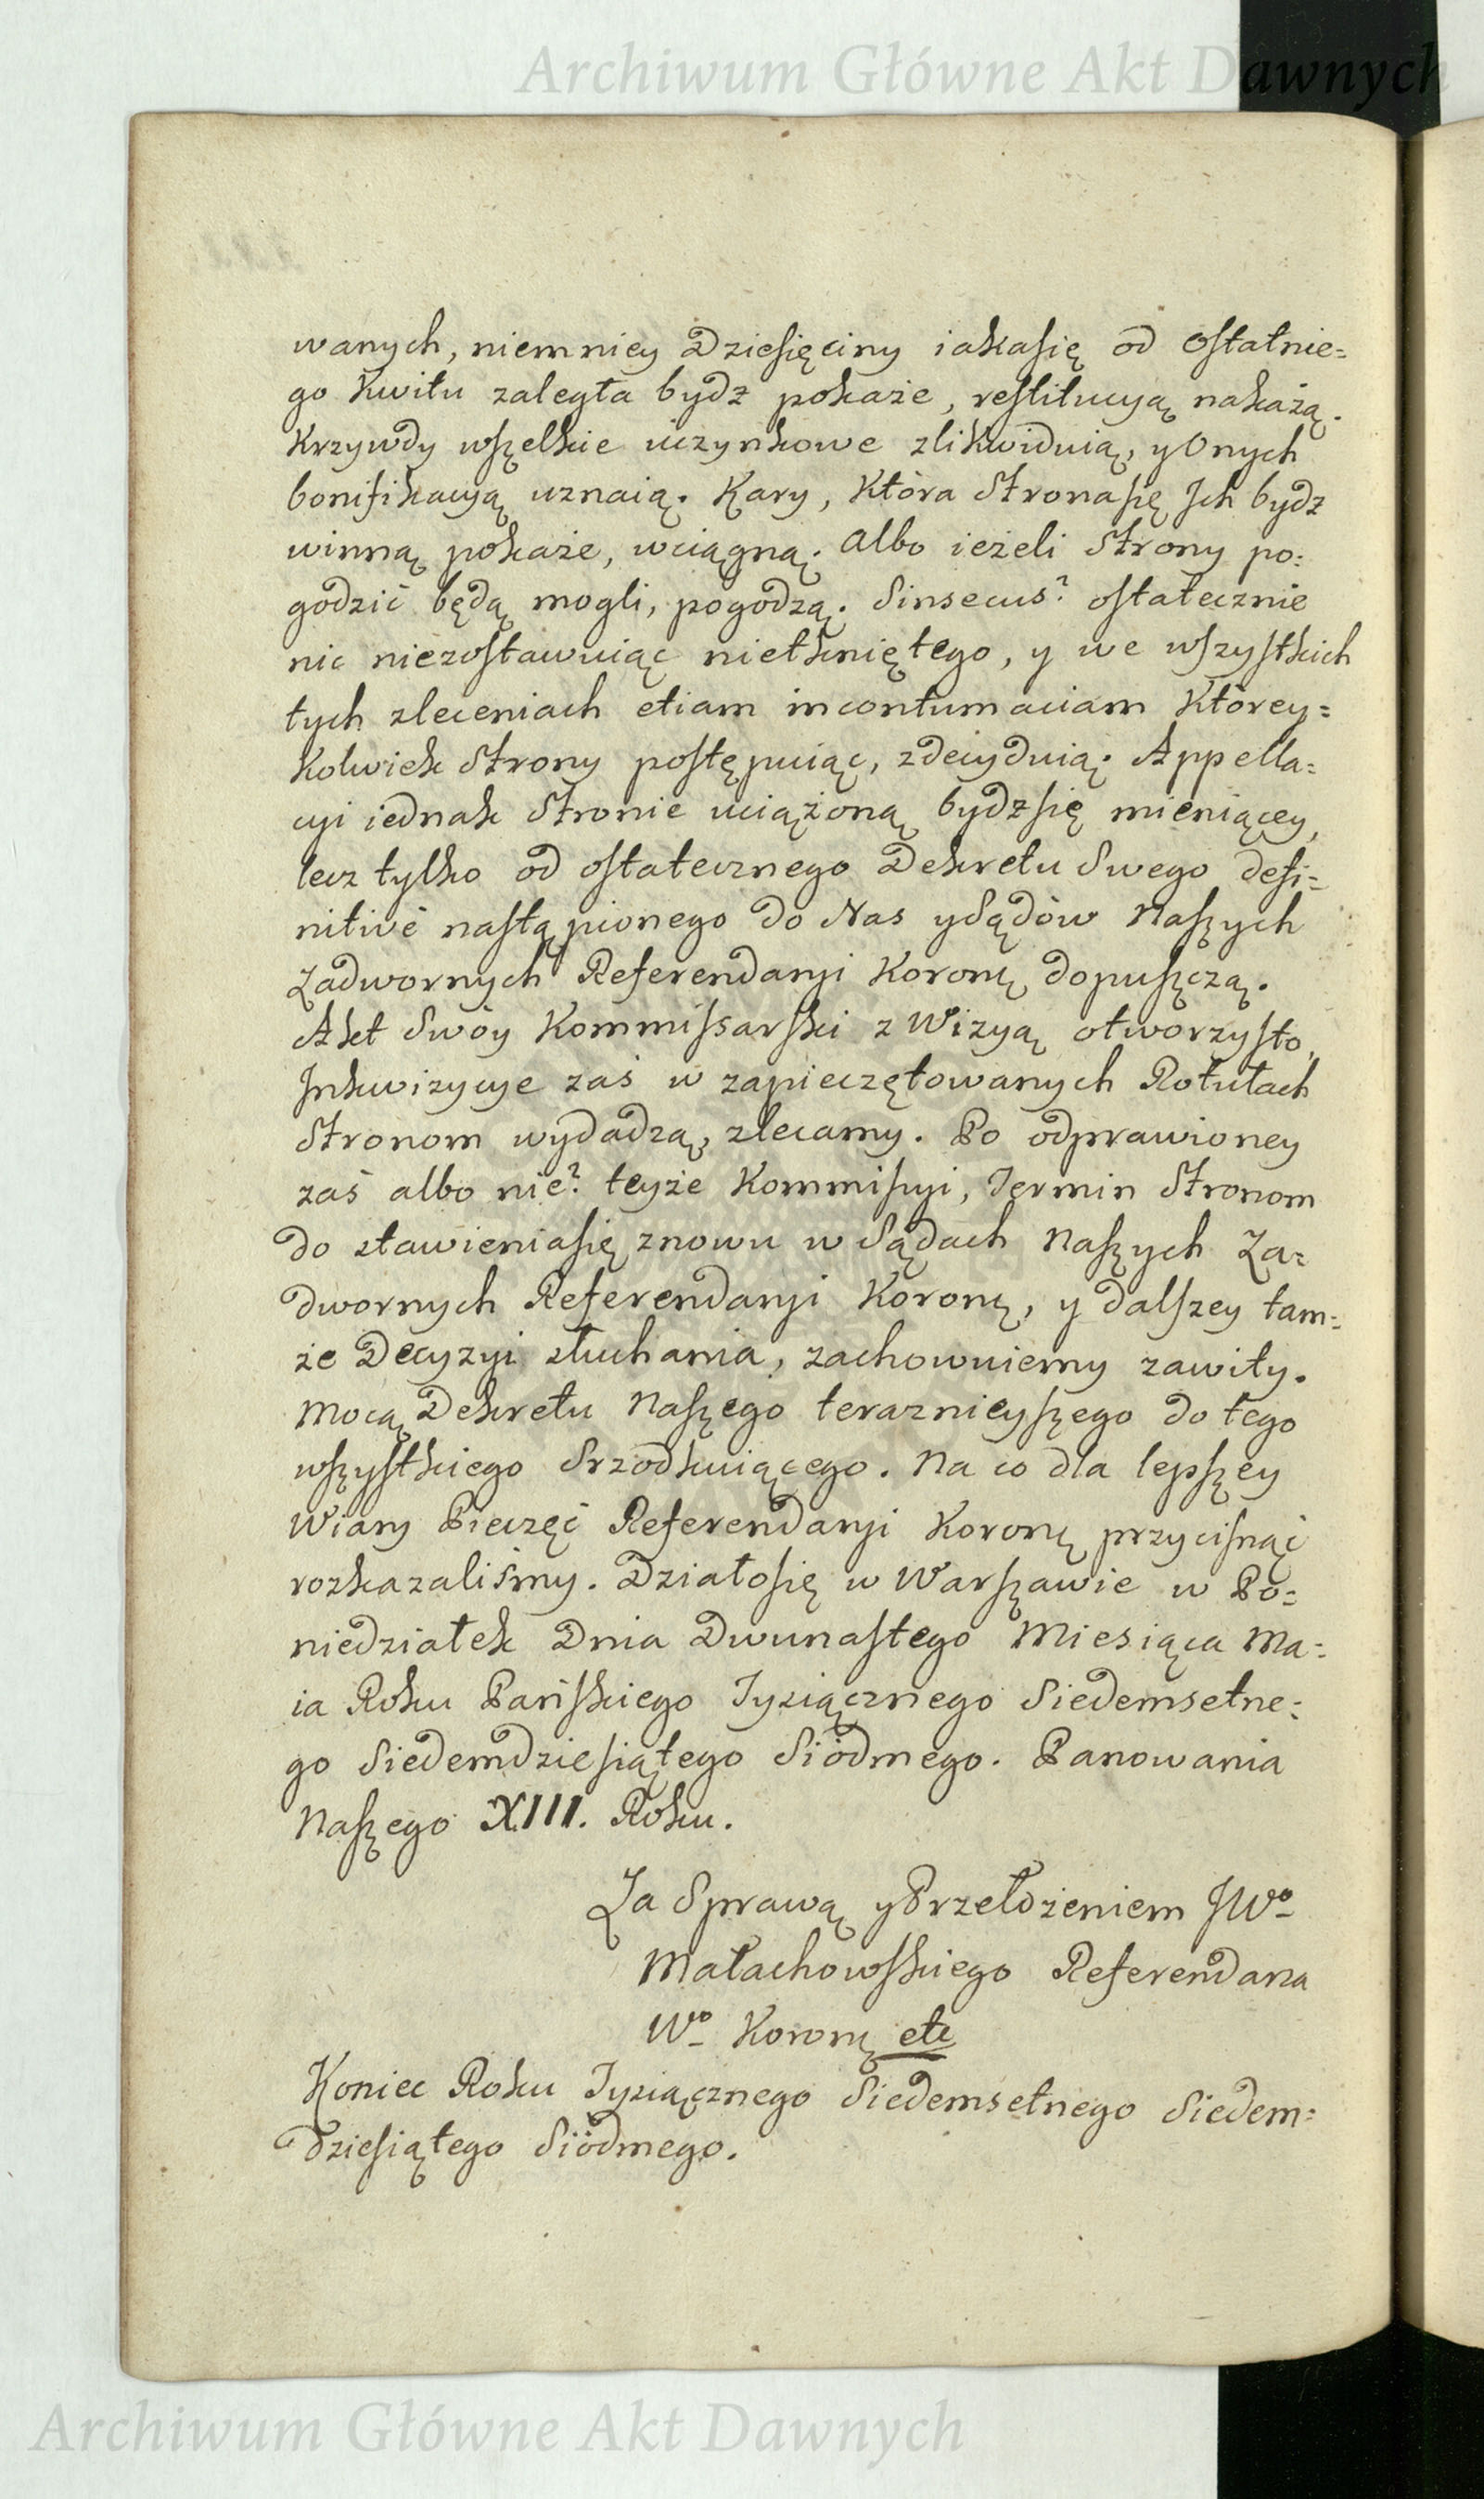 Archiwum Główne Akt Dawnych
wanych, niemniey Dziesięciny iakasię od ostatnie=
go Kwitu zaległa bydz pokaże, restitucyą nakażą.
Krzywdy wszelkie uczynkowe zlikwiduią, y Onych
bonifikacyą uznaią. Kary, Która Stronasię Ich bydz
winną pokaże, wciągną. Albo ieżeli Strony po=
godzić będą mogli, pogodzą. Sinsecus? ostatecznie
nic niezostawuiąc nietkniętego, y we wszystkich
tych zleceniach etiam incontumaciam Którey=
Kolwiek Strony postępuiąc, zdecyduią. Appella=
cyi iednak Stronie uciążoną bydzsię mieniącey,
lecz tylko od ostatecznego Dekretu Swego defi=
nitivè nastąpionego do Nas ySądów Naszych
Zadwornych Referendaryi Koronę dopuszczą.
Akt Swóy Kommissarski z Wizyą otworzysto,
Inkwizycye zaś w zapieczętowanych Rotułach
Stronom wydadzą, zlecamy. Po odprawioney
zaś albo nie? teyże Kommissyi, Termin Stronom
do stawieniasię znowu w Sądach Naszych Za=
dwornych Referendaryi Koronę, y dalszey tam=
że Decyzyi słuchania, zachowuiemy zawity.
Mocą Dekretu Naszego teraznieyszego do tego
wszystkiego Srzodkuiącego. Na co dla lepszey
Wiary Pieczęć Referendaryi Koronę przycisnąć
rozkazaliśmy. Działosię w Warszawie w Po=
niedziałek Dnia Dwunastego Miesiąca Ma=
ia Roku Pańskiego Tysiącznego Siedemsetne=
go Siedemdziesiątego Siódmego. Panowania
Naszego XIII. Roku.
Za Sprawą yPrzełożeniem JWº
Małachowskiego Referendarza
Wº Koronę etc
Koniec Roku Tysiącznego Siedemsetnego Siedem=
dziesiątego Siódmego.
Archiwum Główne Akt Dawnych